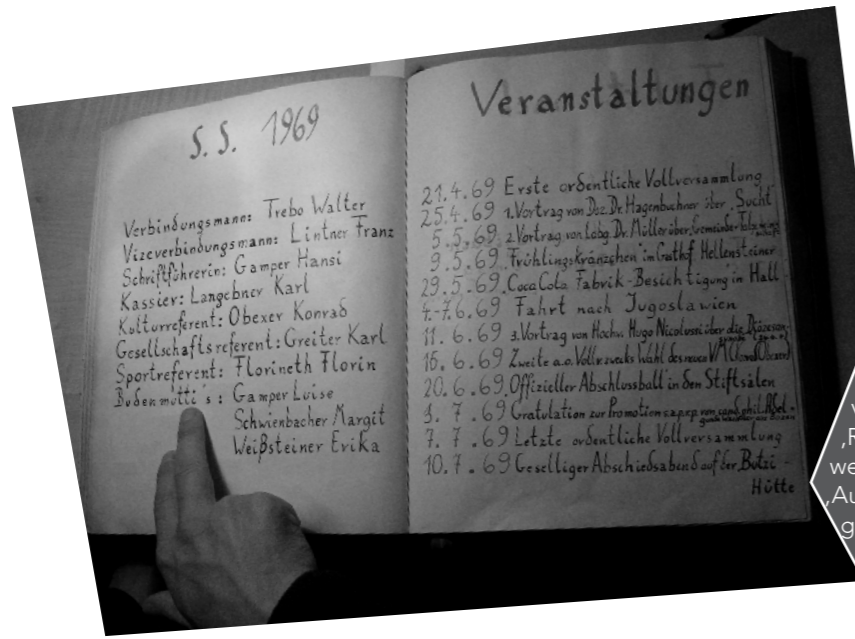 S. S. 1969
Verbindungsmann: Trebo Walter
Vizeverbindungsmann: Lintner Franz
Schriftführerin: Gamper Hansi
Kassier: Langebner Karl
Kulturreferent: Obexer Konrad
Gesellschaftsreferent: Greiter Karl
Sportreferent: Florineth Florin
Budenmutti's: Gamper Luise
Schwienbacher Margit
Weißsteiner Erika
Veranstaltungen
21.4.69 Erste ordentliche Vollversammlung
25.4.69 1. Vortrag von Doz. Dr. Hagenbuchner über "Sucht"
5.5.69 2. Vortrag von Labg. Dr. Müller über
9.5.69 "Frühlingskränzchen" im Gasthof Hellensteiner
29.5.69 Coca Cola Fabrik-Besichtigung in Hall
4.-7.6.69 Fahrt nach Jugoslawien
11.6.69 3. Vortrag von Hochw. Hugo Nicolussi über die
16.6.69 Zweite a.o. Vollv. zwecks Wahl des neuen VM (Konrad Obexer)
20.6.69 Offizieller Abschlussball in den Stiftsälen
3.7.69 Gratulation zur Promotion von cand. phil.
7.7.69 Letzte ordentliche Vollversammlung
10.7.69 Geselliger Abschiedsabend auf der "Butzi-
Hütte